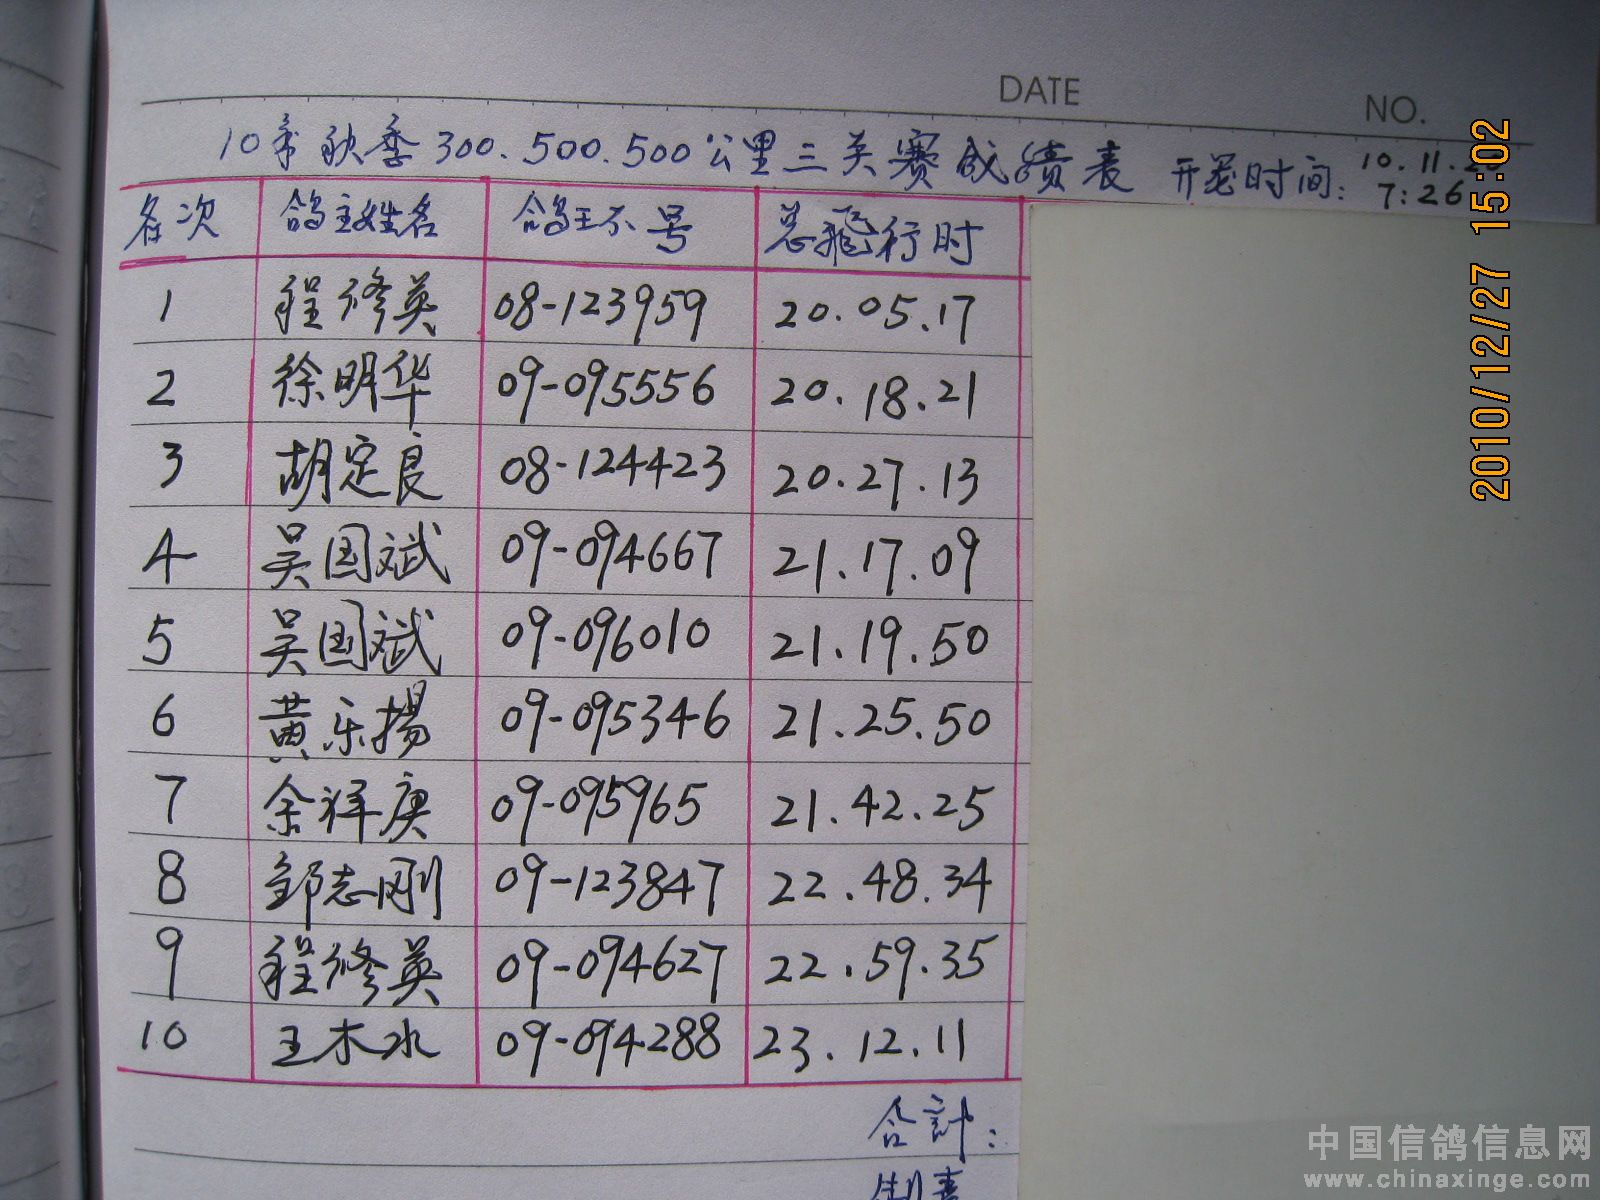 DATE
NO.
10年秋季300.500.500公里三关赛成绩表 开笼时间: 10.11.2
7:26
2010/12/27 15:02
名次 鸽主姓名 鸽环号 总飛行时
1 程修英 08-123959 20.05.17
2 徐明华 09-095556 20.18.21
3 胡定良 08-124423 20.27.13
4 吴国斌 09-094667 21.17.09
5 吴国斌 09-096010 21.19.50
6 黄乐揚 09-095346 21.25.50
7 余祥庚 09-095965 21.42.25
8 邹志刚 09-123847 22.48.34
9 程修英 09-094627 22.59.35
10 王木水 09-094288 23.12.11
合計:
制表
中国信鸽信息网
www.chinaxinge.com